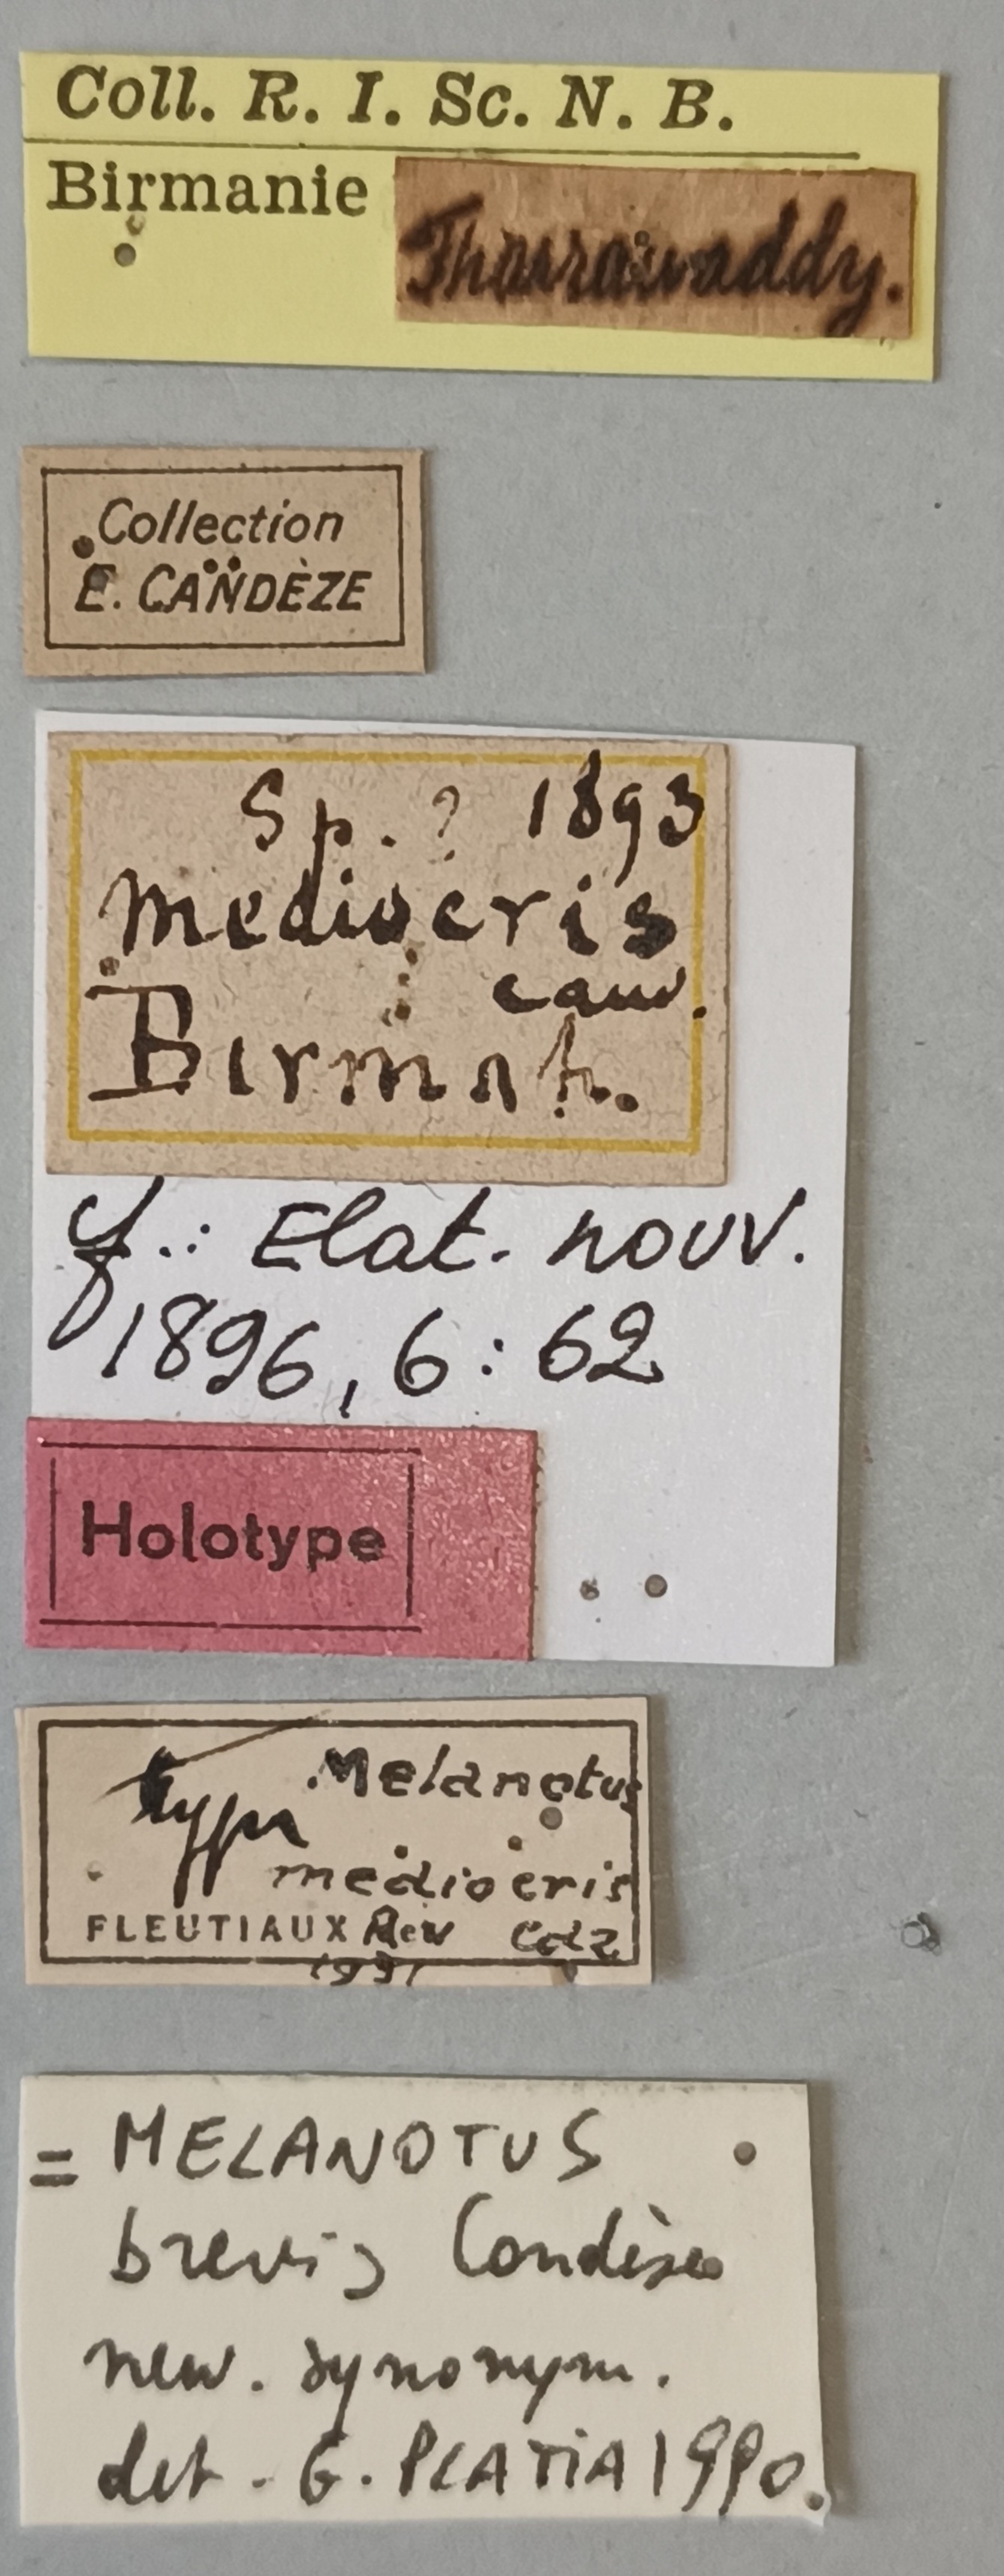 Coll. R. I. Sc. N. B.
Birmanie
Tharrawaddy.
Collection
E. CANDÈZE
Sp. ? 1893
mediocris
Birmah.
cf.: Elat. nouv.
1896, 6: 62
Holotype
Melanotus
mediocris
FLEUTIAUX Rev Cdz
= MELANOTUS
brevis Candèze
new. synonym.
det. G. PLATIA 1990.